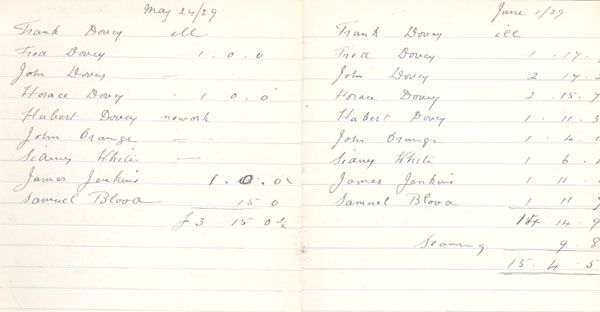 May 24/29
Frank Dovey ill
Fred Dovey 1 . 0 . 0
John Dovey —
Horace Dovey . 1 0 . 0
Hubert Dovey no work
John Orange —
Sidney White —
James Jenkins 1 . 0 . 0
Samuel Blova 15 0
£ 3 15 0 ½
June 1/29
Frank Dovey ill
Fred Dovey 1 . 17 .
John Dovey 2 17 .
Horace Dovey 2 . 15 .
Hubert Dovey 1 . 11 .
John Orange 1 . 4 .
Sidney White 1 6 .
James Jenkins 1 11
Samuel Blova 1 11
14 . 9
9 . 8
15 . 4 . 5